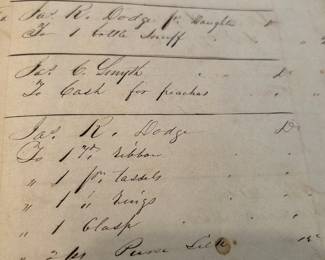 Jas. R. Dodge pr. Daughter
To 1 bottle Snuff "
Jas. C. Smyth " Dr
To Cash for peaches "
Jas. R. Dodge Dr
To 1 Yd. Ribbon "
" 1 pr. tassels "
" 1 " Rings "
" 1 Clasp "
" 2 Purse Silk